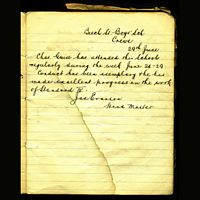 Beech St Boys' Sch
Crewe
29th June
Chas. has attended this School
regularly during the week June 24-29.
Conduct has been exemplary & he has
made excellent progress in the work
of Standard IV.
Head Master